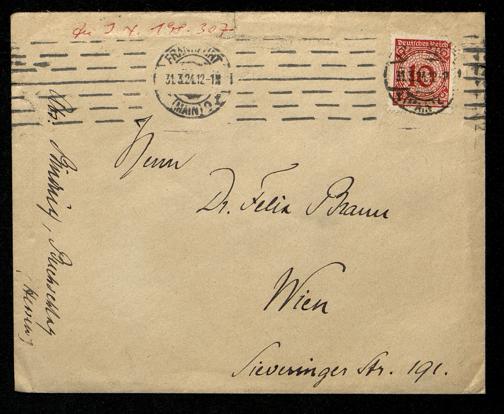 zu I. N. 198.307
FRANKFURT
31.3.24.12-1N
(MAIN) 2
Deutsches Reich
10
Herrn
Dr. Felix Braun
Wien
Sieveringer Str. 191.
Binding, Buchschlag
(Hessen)